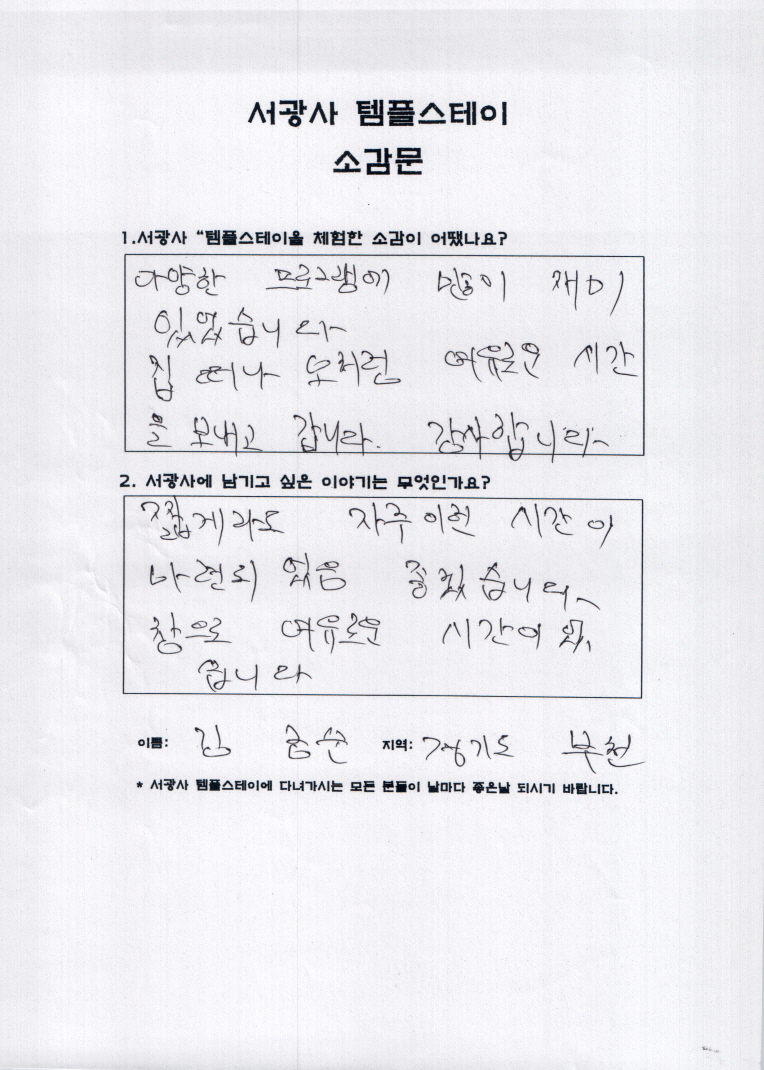 서광사 템플스테이
소감문
1.서광사 "템플스테이을 체험한 소감이 어땠나요?
다양한 프로그램에 많이 재미
있었습니다
집 떠나 모처럼 여유로운 시간
을 보내고 갑니다. 감사합니다
2. 서광사에 남기고 싶은 이야기는 무엇인가요?
짧게라도 자주 이런 시간이
마련되 었음 좋겠습니다.
참으로 여유로운 시간이 었
습니다
이름: 김 금순 지역: 경기도 부천
* 서광사 템플스테이에 다녀가시는 모든 분들이 날마다 좋은날 되시기 바랍니다.